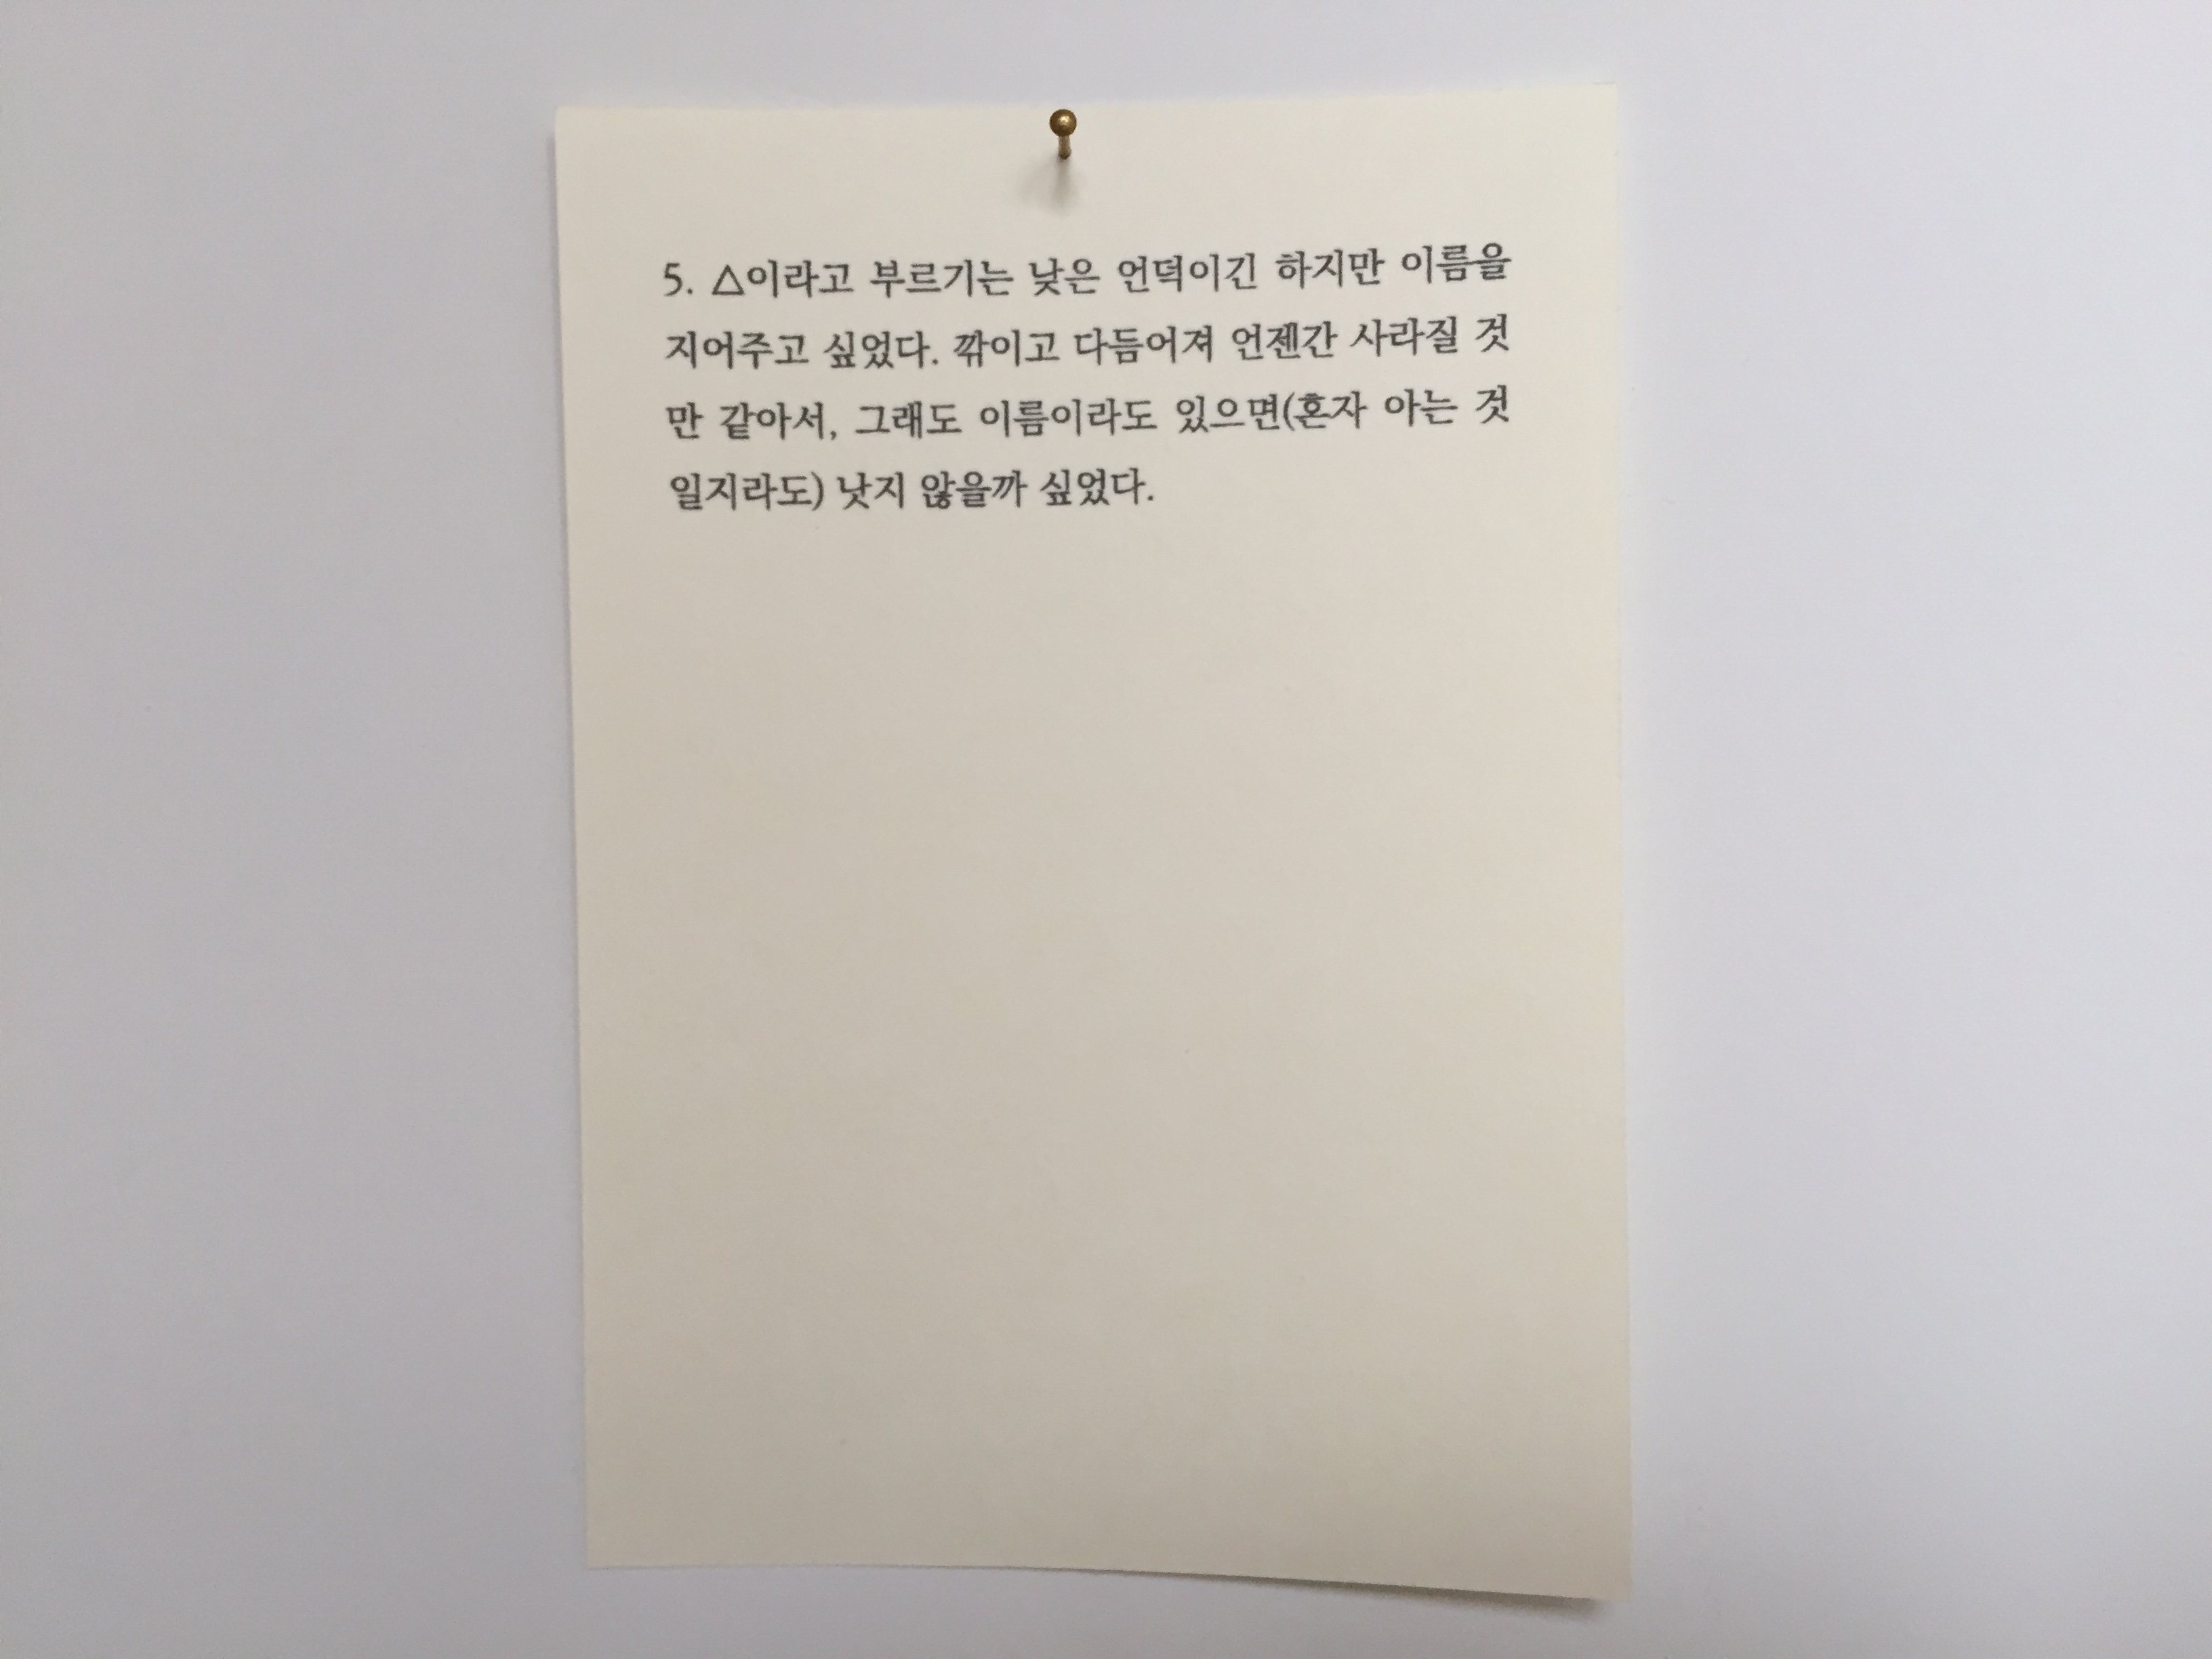 5. △이라고 부르기는 낮은 언덕이긴 하지만 이름을
지어주고 싶었다. 깎이고 다듬어져 언젠간 사라질 것
만 같아서, 그래도 이름이라도 있으면(혼자 아는 것
일지라도) 낫지 않을까 싶었다.